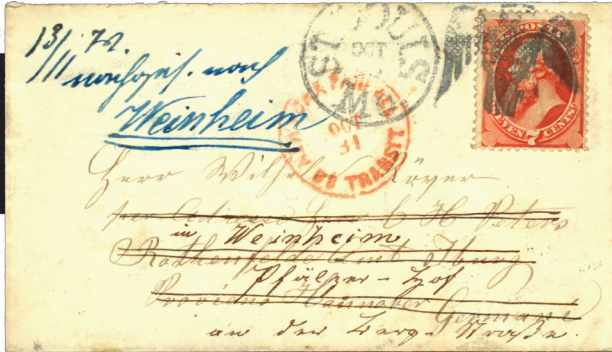 13/11 72.
nachges. nach
Weinheim
ST LOUIS MO
OCT
NEW YORK PAID ALL BR TRANSIT
OCT
31
U.S. POSTAGE
SEVEN 7 CENTS
Herr Wilhelm Röver
per Adresse C H Peters
in Weinheim
Rothenfelde Amt Iburg
Pfälzer-Hof
Provinz Hannover Germany
an der Berg-Straße.